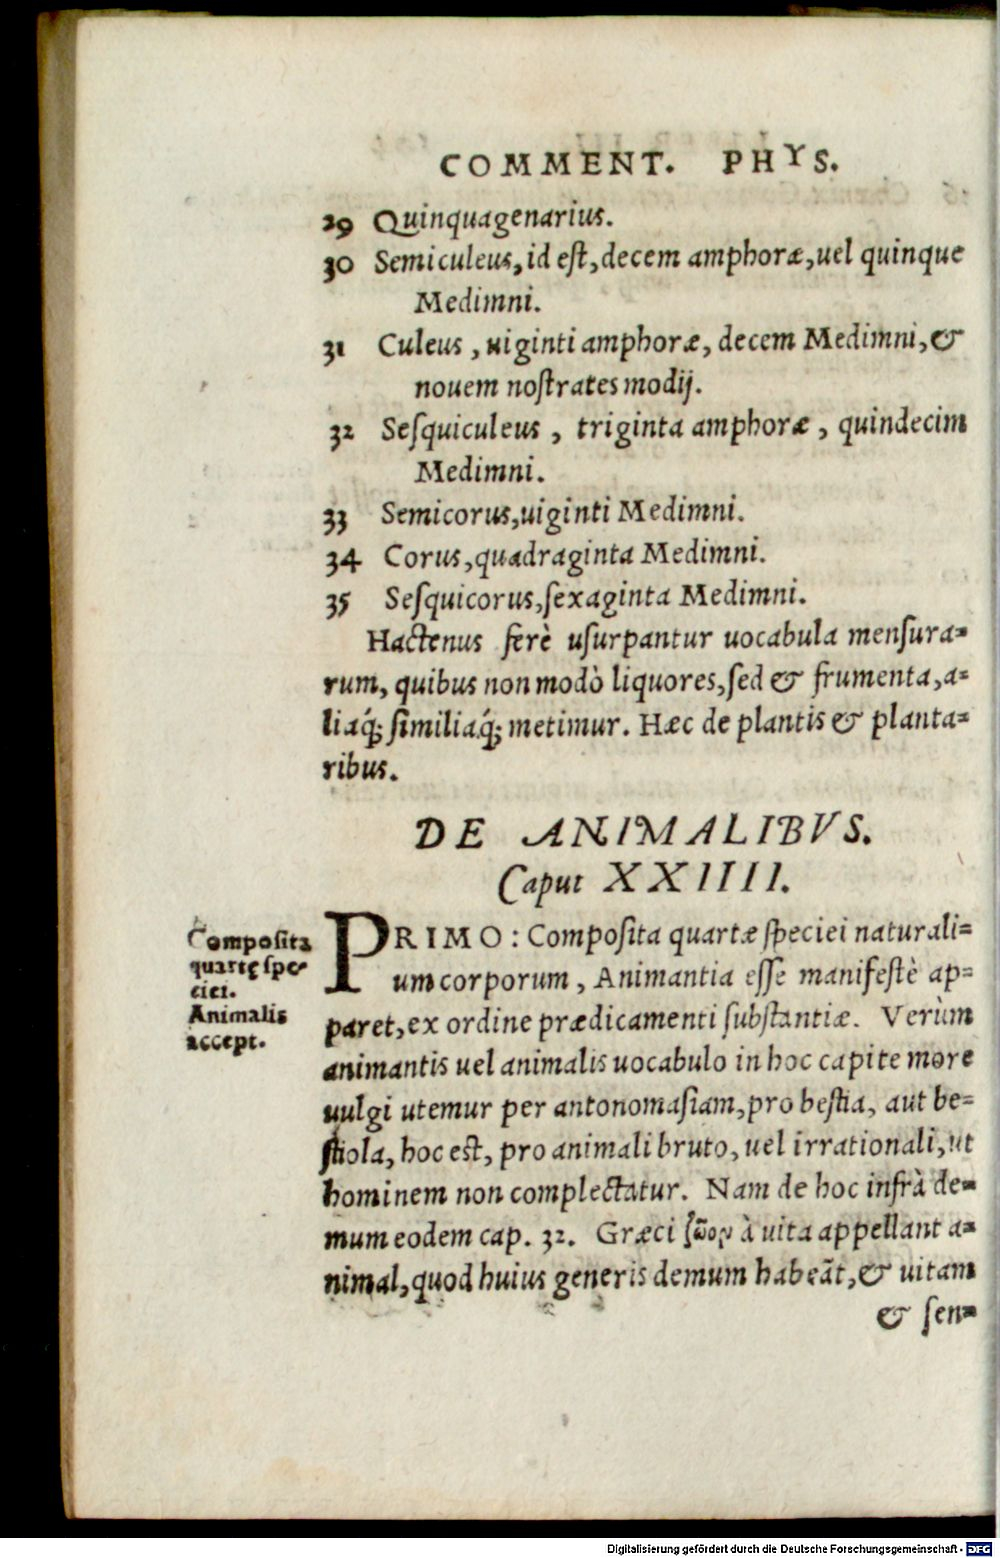 COMMENT. PHYS.
29 Quinquagenarius.
30 Semiculeus, id eſt, decem amphoræ, uel quinque
Medimni.
31 Culeus, uiginti amphoræ, decem Medimni, &
nouem noſtrates modij.
32 Seſquiculeus, triginta amphoræ, quindecim
Medimni.
33 Semicorus, uiginti Medimni.
34 Corus, quadraginta Medimni.
35 Seſquicorus, ſexaginta Medimni.
Hactenus ferè uſurpantur uocabula menſura=
rum, quibus non modò liquores, ſed & frumenta, a=
liaq́; ſimiliaq́; metimur. Hæc de plantis & planta=
ribus.
DE ANIMALIBVS.
Caput XXIIII.
Compoſita
quartę ſpe-
ciei.
Animalis
accept.
PRIMO: Compoſita quartæ ſpeciei naturali=
um corporum, Animantia eſſe manifeſtè ap=
paret, ex ordine prædicamenti ſubſtantiæ. Verùm
animantis uel animalis uocabulo in hoc capite more
uulgi utemur per antonomaſiam, pro beſtia, aut be=
ſtiola, hoc eſt, pro animali bruto, uel irrationali, ut
hominem non complectatur. Nam de hoc infrà de=
mum eodem cap. 32. Græci ζῶον à uita appellant a=
nimal, quod huius generis demum habeāt, & uitam
& ſen=
Digitalisierung gefördert durch die Deutsche Forschungsgemeinschaft - DFG